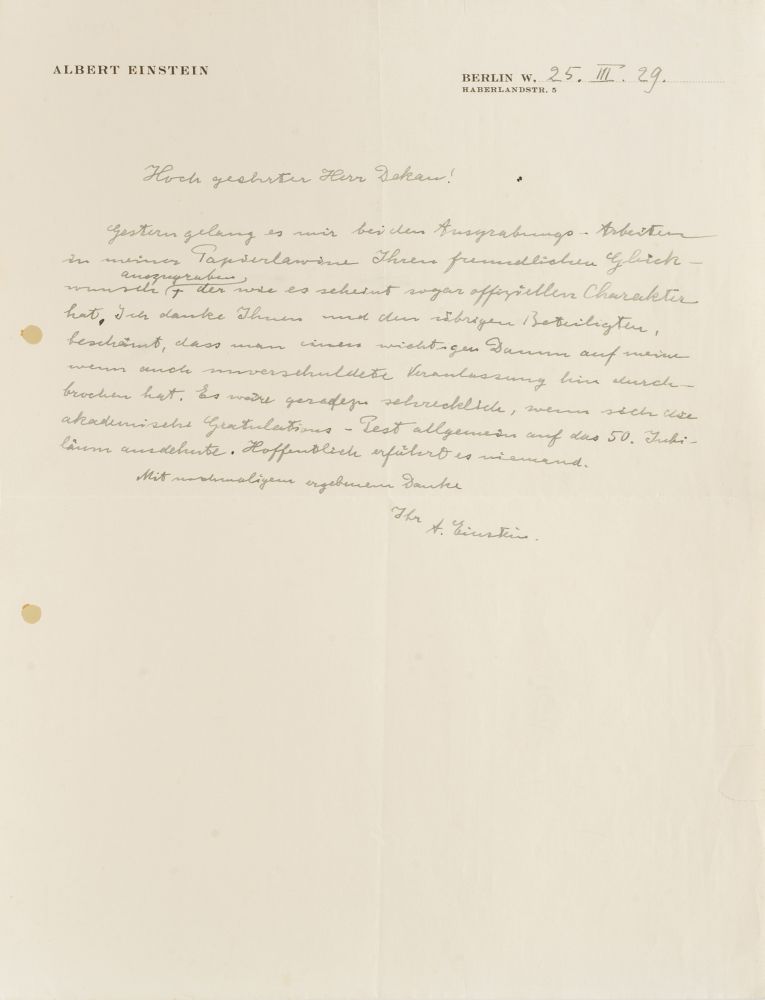 ALBERT EINSTEIN
BERLIN W. 25. III. 29.
HABERLANDSTR. 5
Hoch geehrter Herr Dekan!
Gestern gelang es mir bei den Ausgrabungs-Arbeiten
in meiner Papierlawine Ihren freundlichen Glück-
auszugraben,
wunsch der wie es scheint sogar offiziellen Charakter
hat. Ich danke Ihnen und den übrigen Beteiligten,
beschämt, dass man einen wichtigen Damm auf meine
wenn auch unverschuldete Veranlassung hin durch-
brochen hat. Es wäre geradezu schrecklich, wenn sich die
akademische Gratulations-Pest allgemein auf das 50. Jubi-
läum ausdehnte. Hoffentlich erfährt es niemand.
Mit nochmaligem ergebenem Danke
Ihr
A. Einstein.